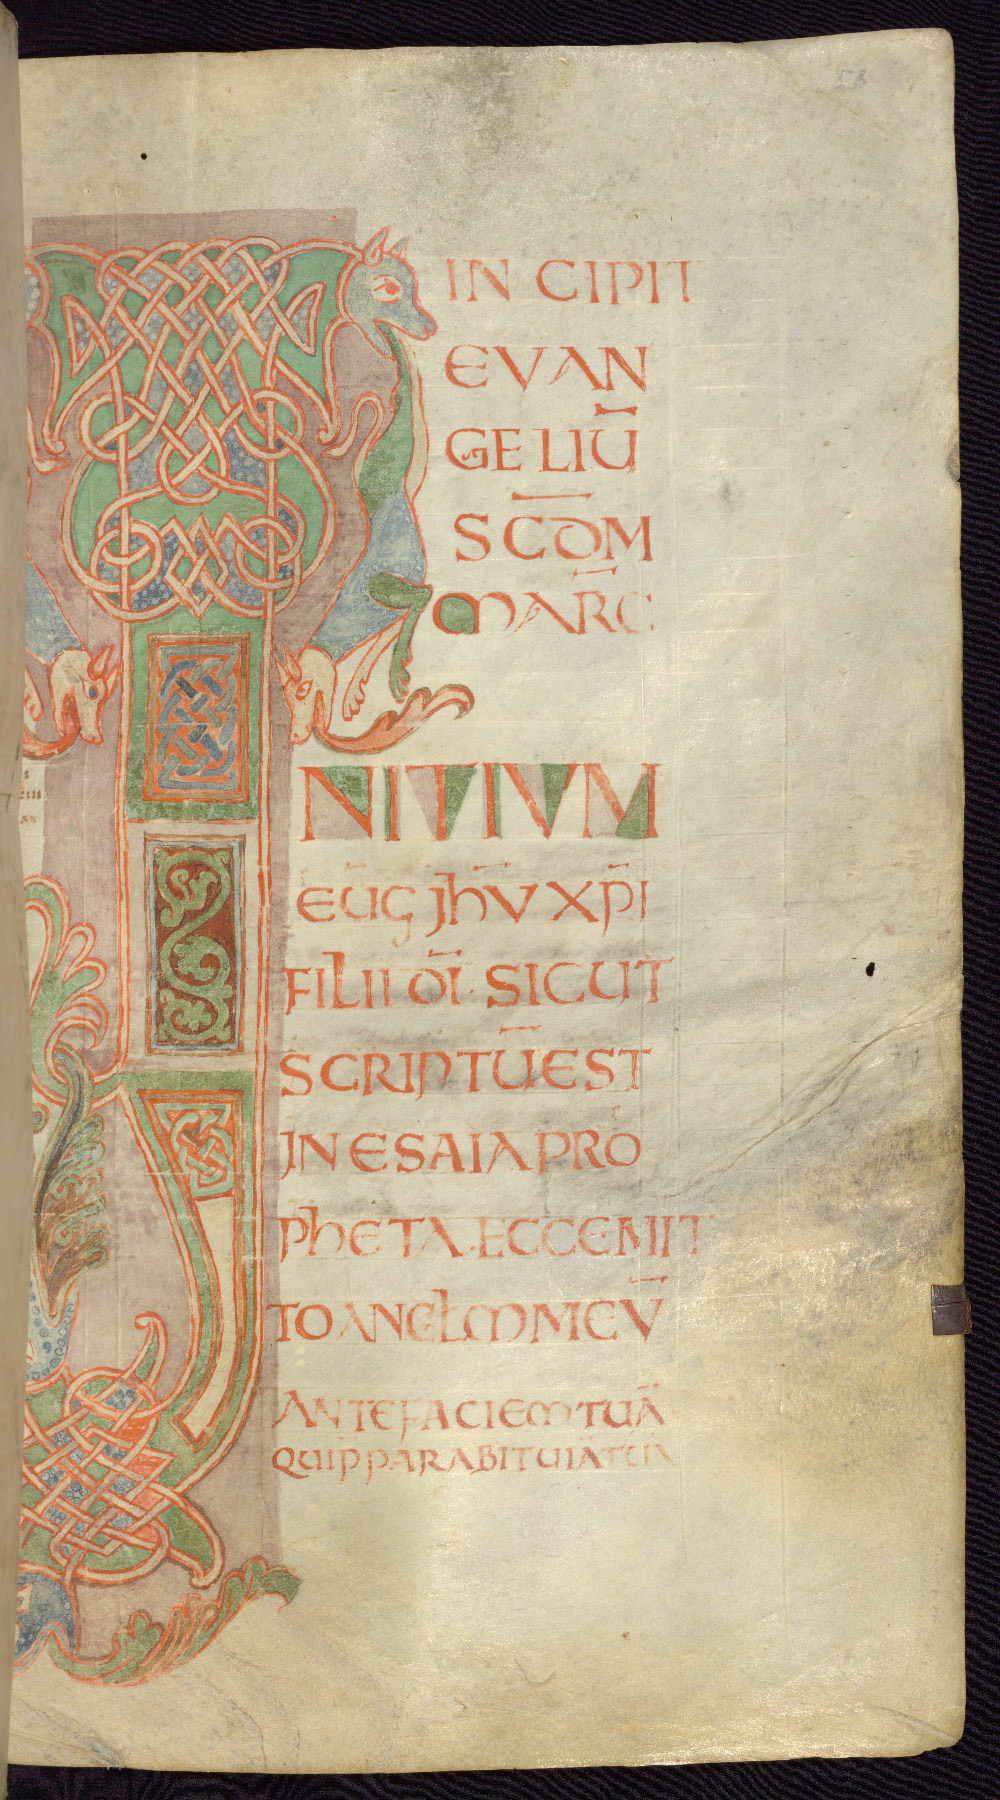 IN CIPIT
EVAN
GELIŪ
SC̄DM
MARC̄
NITIVM
EŪG JHV̄ XP̄I
FILII D̄I. SICUT
SCRIPTŪEST
JN ESAIA PRO
PHETA. ECCE MIT
TO ANGEL̄M MEV̄
ANTE FACIEM TUĀ
QUI P̄PARABIT UIĀ TUĀ